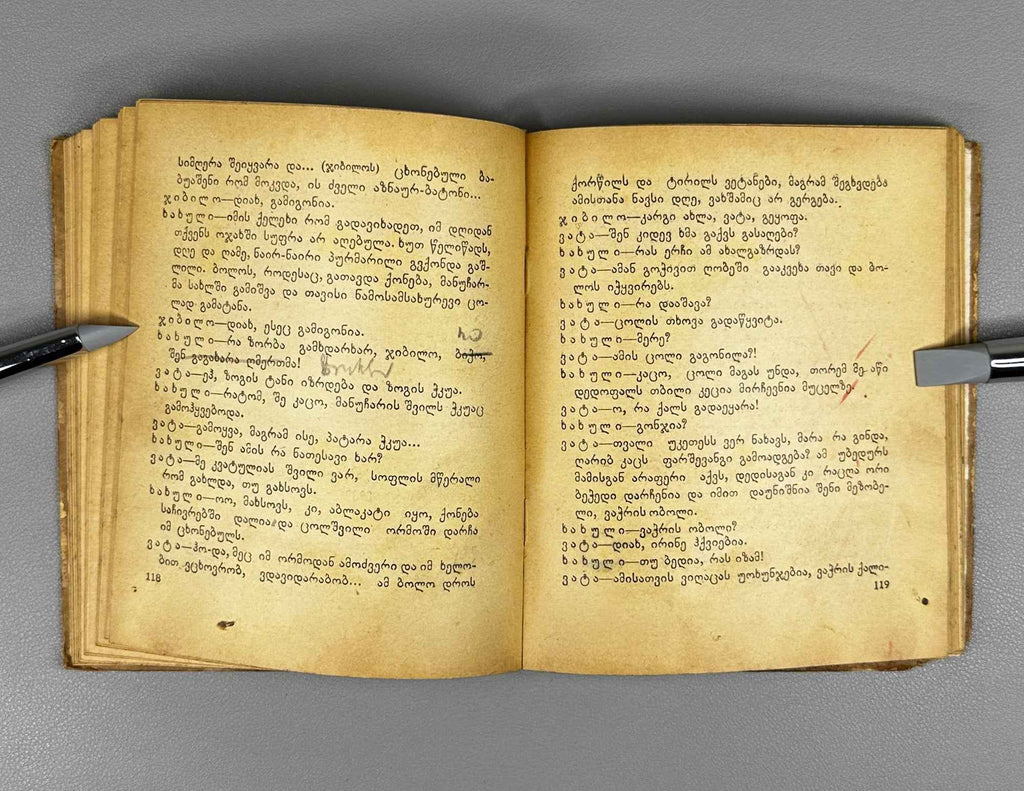 სიმღერა შეიყვარა და... (ჯიბილოს) ცხონებული ბა-
ბუაშენი რომ მოკვდა, ის ძველი აზნაურ-ბატონი...
ჯიბილო—დიახ, გამიგონია.
ხახული—იმის ქელეხი რომ გადავიხადეთ, იმ დღიდან
თქვენს ოჯახში სუფრა არ აღებულა. ხუთ წელიწადს,
დღე და ღამე, ნაირ-ნაირი პურმარილი გვქონდა გაშ-
ლილი. ბოლოს, როდესაც, გათავდა ქონება, მანუჩარ-
მა სახლში გამიშვა და თავისი ნამოსამსახურევი ცო-
ლად გამატანა.
ჯიბილო—დიახ, ესეც გამიგონია.
ხახული—რა ზორბა გამხდარხარ, ჯიბილო, ბიჭო,
შენ გაგახარა ღმერთმა!
ვატა—ეჰ, ზოგის ტანი იზრდება და ზოგის ჭკუა.
ხახული—რატომ, შე კაცო, მანუჩარის შვილს ჭკუაც
გამოჰყვებოდა.
ვატა—გამოყვა, მაგრამ ისე, პატარა ჭკუა...
ხახული—შენ ამის რა ნათესავი ხარ?
ვატა—მე კვატულიას შვილი ვარ, სოფლის მწერალი
რომ გახლდა, თუ გახსოვს.
ხახული—ოო, მახსოვს, კი, აბლაკატი იყო, ქონება
საჩივრებში დალია და ცოლშვილი ორმოში დარჩა
იმ ცხონებულს.
ვატა—ჰო-და, მეც იმ ორმოდან ამოძვერი და იმ ხელო-
ბით ვცხოვრობ, ვდავიდარაბობ... ამ ბოლო დროს
118
ქორწილს და ტირილს ვეტანები, მაგრამ შეგხვდება
ამისთანა ნავსი დღე, ვახშამიც არ გერგება.
ჯიბილო—კარგი ახლა, ვატა, გეყოფა.
ვატა—შენ კიდევ ხმა გაქვს გასაღები?
ხახული—რას ერჩი ამ ახალგაზრდას?
ვატა—ამან გოჭივით ღობეში გააკვეხა თავი და ბო-
ლოს იჭყვირებს.
ხახული—რა დააშავა?
ვატა—ცოლის თხოვა გადაწყვიტა.
ხახული—მერე?
ვატა—ამის ცოლი გაგონილა?!
ხახული—კაცო, ცოლი მაგას უნდა, თორემ მე აწი
დედოფალს თბილი კეცია მირჩევნია მუცელზე.
ვატა—ო, რა ქალს გადაეყარა!
ხახული—გონჯია?
ვატა—თვალი უკეთესს ვერ ნახავს, მარა რა გინდა,
ღარიბ კაცს ფარშევანგი გამოადგება? ამ უბედურს
მამისგან არაფერი აქვს, დედისაგან კი რაცღა ორი
ბეჭედი დარჩენია და იმით დაუნიშნია შენი მეზობე-
ლი, ვაჭრის ობოლი.
ხახული—ვაჭრის ობოლი?
ვატა—დიახ, ირინე ჰქვიებია.
ხახული—თუ ბედია, რას იზამ!
ვატა—ამისათვის ვიღაცას უოხუნჯებია, ვაჭრის ქალი-
119